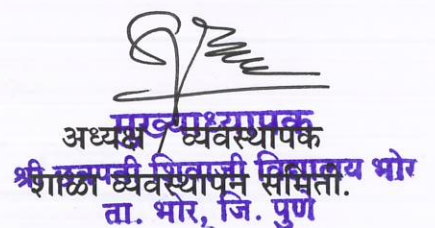 मुख्याध्यापक
अध्यक्ष / व्यवस्थापक
श्री छत्रपती शिवाजी विद्यालय भोर
शाळा व्यवस्थापन समिती.
ता. भोर, जि. पुणे